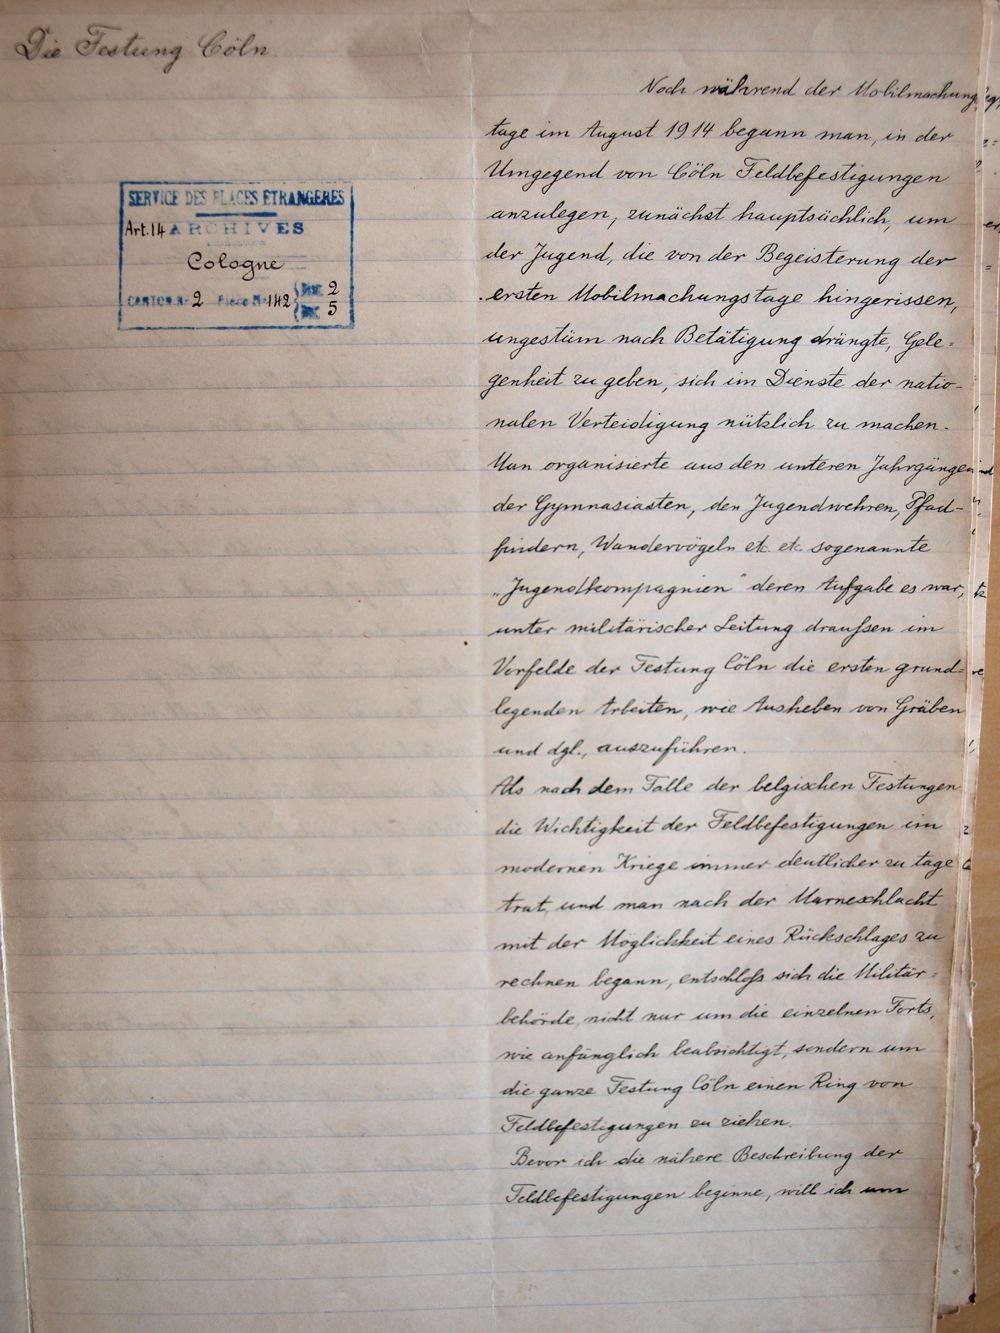 Die Festung Cöln
SERVICE DES PLACES ETRANGERES
Art. 14 ARCHIVES
Cologne
CARTON No 2 Piece No 142 2
5
Noch während der Mobilmachungs
tage im August 1914 begann man, in der
Umgegend von Cöln Feldbefestigungen
anzulegen, zunächst hauptsächlich, um
der Jugend, die von der Begeisterung der
ersten Mobilmachungstage hingerissen,
ungestüm nach Betätigung drängte, Gele=
genheit zu geben, sich im Dienste der natio-
nalen Verteidigung nützlich zu machen.
Man organisierte aus den unteren Jahrgängen
der Gymnasiasten, den Jugendwehren, Pfad-
findern, Wandervögeln etc. etc. sogenannte
„Jugendkompagnien" deren Aufgabe es war,
unter militärischer Leitung draußen im
Vorfelde der Festung Cöln die ersten grund=
legenden Arbeiten, wie Ausheben von Gräben
und dgl., auszuführen.
Als nach dem Falle der belgischen Festungen
die Wichtigkeit der Feldbefestigungen im
modernen Kriege immer deutlicher zu tage
trat, und man nach der Marneschlacht
mit der Möglichkeit eines Rückschlages zu
rechnen begann, entschloß sich die Militär=
behörde, nicht nur um die einzelnen Forts,
wie anfänglich beabsichtigt, sondern um
die ganze Festung Cöln einen Ring von
Feldbefestigungen zu ziehen.
Bevor ich die nähere Beschreibung der
Feldbefestigungen beginne, will ich um